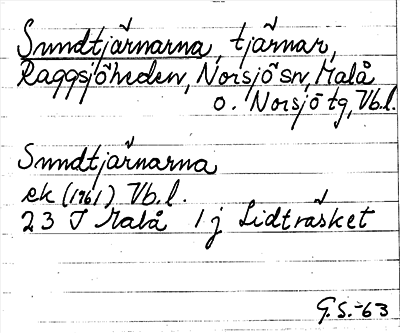 Sundtjärnarna, tjärnar,
Raggsjöheden, Norsjö sn, Malå
o. Norsjö tg, Vb.l.
Sundtjärnarna
ek (1961) Vb.l.
23 I Malå 1j Lidträsket
G.S.-63